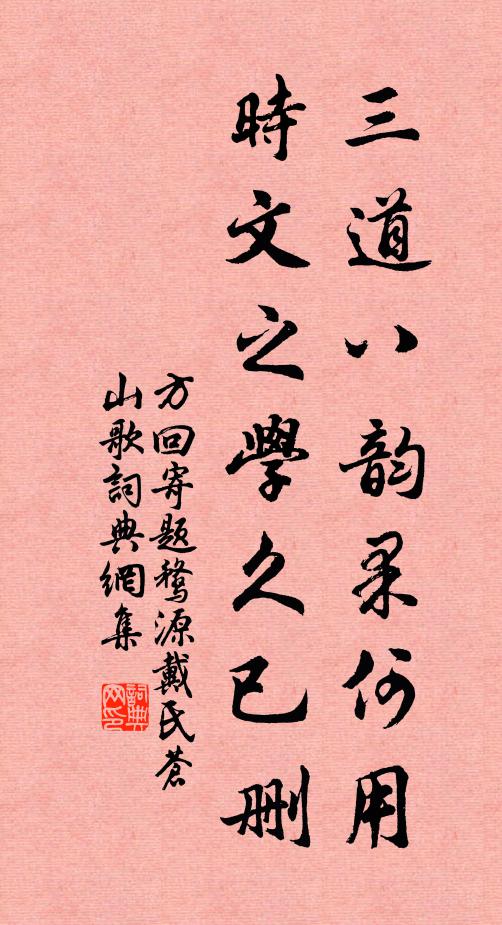 三道八韵果何用
時文之學久已刪
方回寄题婺源戴氏蒼
山歌詞典網集
詞典網印